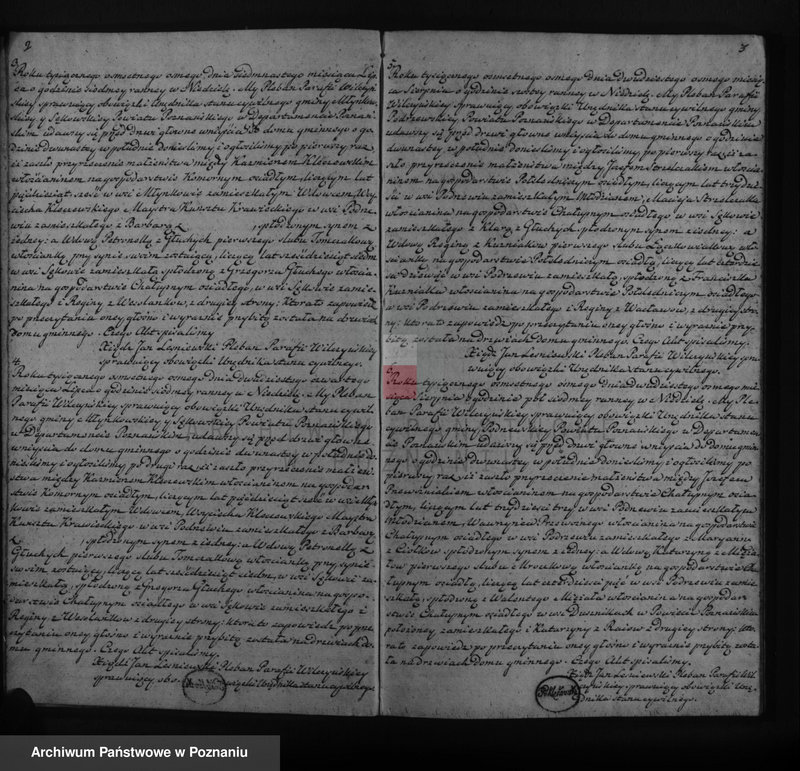 2
3
Roku tysiącznego osmsetnego osmego dnia siedmnastego miesiąca Lip
ca o godzinie siodmey ranney w Niedzielę. My Pleban Parafii Wilczyń
skiey sprawuiący obowiązki Urzędnika stanu cywilnego gminy
y Sękowskiey Powiatu Poznańskiego w Departamencie Poznań
skim udawszy się przed drzwi główne weyścia do domu gminnego o go
dzinie dwunastey w południe donieśliśmy i ogłosiliśmy po pierwszy raz
iż zaszło przyrzeczenie małżeństwa między Kazmierzem
włościaninem na gospodarstwie Komornym osiadłym, liczącym lat
pięćdziesiąt sześć w wsi Młynkowie zamieszkałym Wdowcem, Woy
ciecha Maystra Kunsztu Krawieckiego w wsi Podrze
wiu zamieszkałego z Barbarą z spłodzonym synem z
iedney: a Wdową Petronellą z Głuchych pierwszego ślubu Tomczakową
włościanką przy synie swoim zostaiącą, liczącą lat sześćdziesiąt siedm
w wsi Sękowie zamieszkałą spłodzoną z Grzegorza Głuchego włościa
nina na gospodarstwie Chałupnym osiadłego, w wsi Sękowie zamie
szkałego i Reginy z Weslanków z drugiey strony: Która to zapowiedź
po przeczytaniu oney głośno i wyraźnie przybitą została na drzwiach
domu gminnego. Czego Akt spisaliśmy.
Xiądz Jan Lesniewski Pleban Parafii Wilczyńskiey
sprawuiący obowiązki Urzędnika stanu cywilnego.
4.
Roku tysiącznego osmsetnego osmego dnia dwudziestego czwartego
miesiąca Lipca o godzinie siodmey ranney w Niedzielę. My Pleban
Parafii Wilczyńskiey sprawuiący obowiązki Urzędnika stanu cywil
nego gminy y Sękowskiey Powiatu Poznańskiego
w Departamencie Poznańskim, udawszy się przed drzwi główne
weyścia do domu gminnego o godzinie dwunastey w południe do
nieśliśmy i ogłosiliśmy po drugi raz iż zaszło przyrzeczenie małżeń
stwa między Kazmierzem włościaninem na gospodar
stwie Komornym osiadłym, liczącym lat pięćdziesiąt sześć w wsi Młyn
kowie zamieszkałym Wdowcem, Woyciecha Maystra
Kunsztu Krawieckiego w wsi Podrzewiu zamieszkałego z Barbarą
z spłodzonym synem z iedney: a Wdową Petronellą z
Głuchych pierwszego ślubu Tomczakową włościanką przy synie
swoim zostaiącą, liczącą lat sześćdziesiąt siedm, w wsi Sękowie za
mieszkałą, spłodzoną z Grzegorza Głuchego włościanina na gospo
darstwie Chałupnym osiadłego w wsi Sękowie zamieszkałego i
Reginy z Weslanków z drugiey strony: która to zapowiedź po prze
czytaniu oney głośno i wyraźnie przybitą została na drzwiach do
mu gminnego. Czego Akt spisaliśmy.
Xiądz Jan Lesniewski Pleban Parafii Wilczyńskiey
sprawuiący obowiązki Urzędnika stanu cywilnego
3
5
Roku tysiącznego osmsetnego osmego dnia dwudziestego osmego miesią
ca Sierpnia o godzinie szostey ranney w Niedzielę. My Pleban Parafii
Wilczyńskiey Sprawuiący obowiązki Urzędnika Stanu cywilnego gminy
Podrzewskiey Powiatu Poznańskiego w Departamencie Poznańskim
udawszy się przed drzwi główne weyścia do domu gminnego o godzinie
dwunastey w południe donieśliśmy i ogłosiliśmy, po pierwszy raz iż za
szło przyrzeczenie małżeństwa między Józefem Strzelczakiem włościa
ninem na gospodarstwie Półśledniczym osiadłym, liczącym lat trzydzie
ści w wsi Podrzewiu zamieszkałym Młodzianem, Macieja Strzelczaka
włościanina na gospodarstwie Chałupnym osiadłego w wsi Sękowie
zamieszkałego z Klarą z Głuchych spłodzonym synem z iedney: a
Wdową Reginą z Kuzniaków pierwszego ślubu włoś
cianką na gospodarstwie Półślednicznym osiadłą, liczącą lat czterdzie
ści w wsi Podrzewiu zamieszkałą, spłodzoną z Franciszka
Kuzniaka włościanina na gospodarstwie Półślednicznym osiadłego
w wsi Podrzewiu zamieszkałego i Reginy z Wacławów, z drugiey stro
ny: która to zapowiedź po przeczytaniu oney głośno i wyraźnie przy
bitą została na drzwiach domu gminnego. Czego Akt spisaliśmy.
Xiądz Jan Lesniewski Pleban Parafii Wilczyńskiey spra
wuiący obowiązki Urzędnika Stanu cywilnego.
6
Roku tysiącznego osmsetnego osmego Dnia dwudziestego osmego mie
siąca Sierpnia o godzinie pół siodmey ranney w Niedzielę. My Ple
ban Parafii Wilczyńskiey sprawuiący obowiązki Urzędnika Stanu
cywilnego gminy Podrzewskiey Powiatu Poznańskiego w Departamen
cie Poznańskim udawszy się przed drzwi główne weyścia do domu gmin
nego o godzinie dwunastey w południe donieśliśmy i ogłosiliśmy po
pierwszy raz iż zaszło przyrzeczenie małżeństwa między Józefem
włościaninem na gospodarstwie Chałupnym osia
dłym, liczącym lat trzydzieści trzy w wsi Podrzewiu zamieszkałym
Młodzianem, Wawrzyńca włościanina na gospodarstwie
Chałupnym osiadłego w wsi Podrzewiu zamieszkałego z Maryanną
z Ciołków spłodzonym synem z iedney: a Wdową Katarzyną z
pierwszego ślubu włościanką na gospodarstwie Cha
łupnym osiadłą, liczącą lat czterdzieści pięć w wsi Podrzewiu zamie
szkałą, spłodzoną z Walentego włościanina na gospodar
stwie Chałupnym osiadłego w wsi Dusznikach w Powiecie Poznańskim
położoney zamieszkałego i Katarzyny z Raiów z drugiey strony: któ
ra to zapowiedź po przeczytaniu oney głośno i wyraźnie przybitą zosta
ła na drzwiach domu gminnego. Czego Akt spisaliśmy.
Xiądz Jan Lesniewski Pleban Parafii Wil
czyńskiey, sprawuiący obowiązki Urzę
dnika Stanu cywilnego.
Archiwum Państwowe w Poznaniu